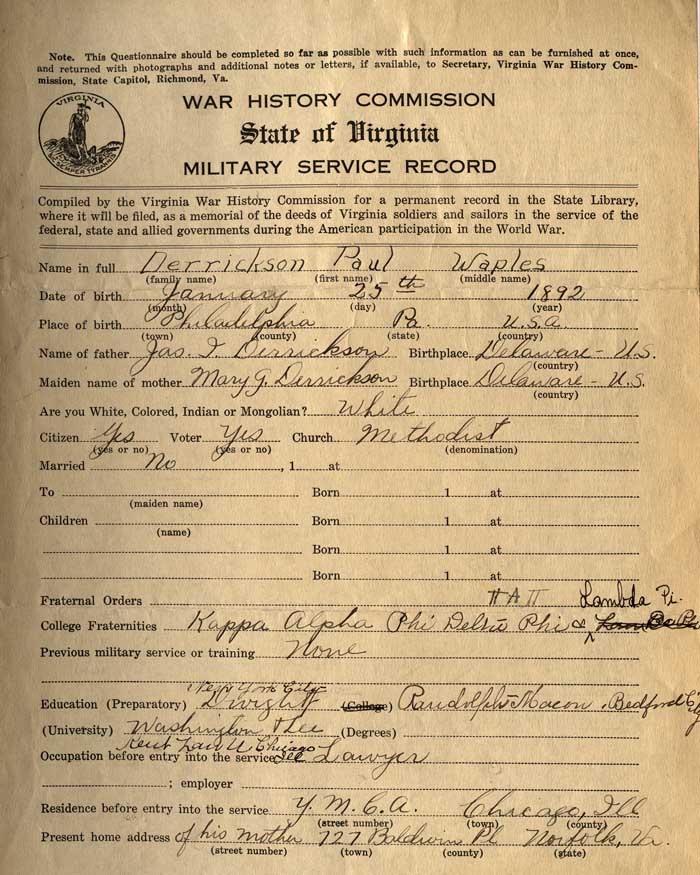 Note. This Questionnaire should be completed so far as possible with such information as can be furnished at once,
and returned with photographs and additional notes or letters, if available, to Secretary, Virginia War History Com-
mission, State Capitol, Richmond, Va.
VIRGINIA
SIC SEMPER TYRANNIS
WAR HISTORY COMMISSION
State of Virginia
MILITARY SERVICE RECORD
Compiled by the Virginia War History Commission for a permanent record in the State Library,
where it will be filed, as a memorial of the deeds of Virginia soldiers and sailors in the service of the
federal, state and allied governments during the American participation in the World War.
Name in full Derrickson Paul Waples
(family name) (first name) (middle name)
Date of birth January 25th 1892
(month) (day) (year)
Place of birth Philadelphia Pa. U.S.A.
(town) (county) (state) (country)
Name of father Jas. T. Derrickson Birthplace Delaware - U.S.
(country)
Maiden name of mother Mary G. Derrickson Birthplace Delaware - U.S.
(country)
Are you White, Colored, Indian or Mongolian? White
Citizen Yes Voter Yes Church Methodist
(yes or no) (yes or no) (denomination)
Married No , 1 at
To Born 1 at
(maiden name)
Children Born 1 at
(name)
Born 1 at
Born 1 at
Fraternal Orders Π Λ Π Lambda Pi.
College Fraternities Kappa Alpha Phi Delta Phi &
Previous military service or training None
New York City
Education (Preparatory) Dwight (College) Randolph-Macon, Bedford City
(University) Washington & Lee (Degrees)
Kent Law U Chicago
Occupation before entry into the service Ill Lawyer
; employer
Residence before entry into the service Y.M.C.A. Chicago, Ill
(street number) (town) (county)
Present home address of his mother 727 Baldwin Pl Norfolk, Va.
(street number) (town) (county) (state)